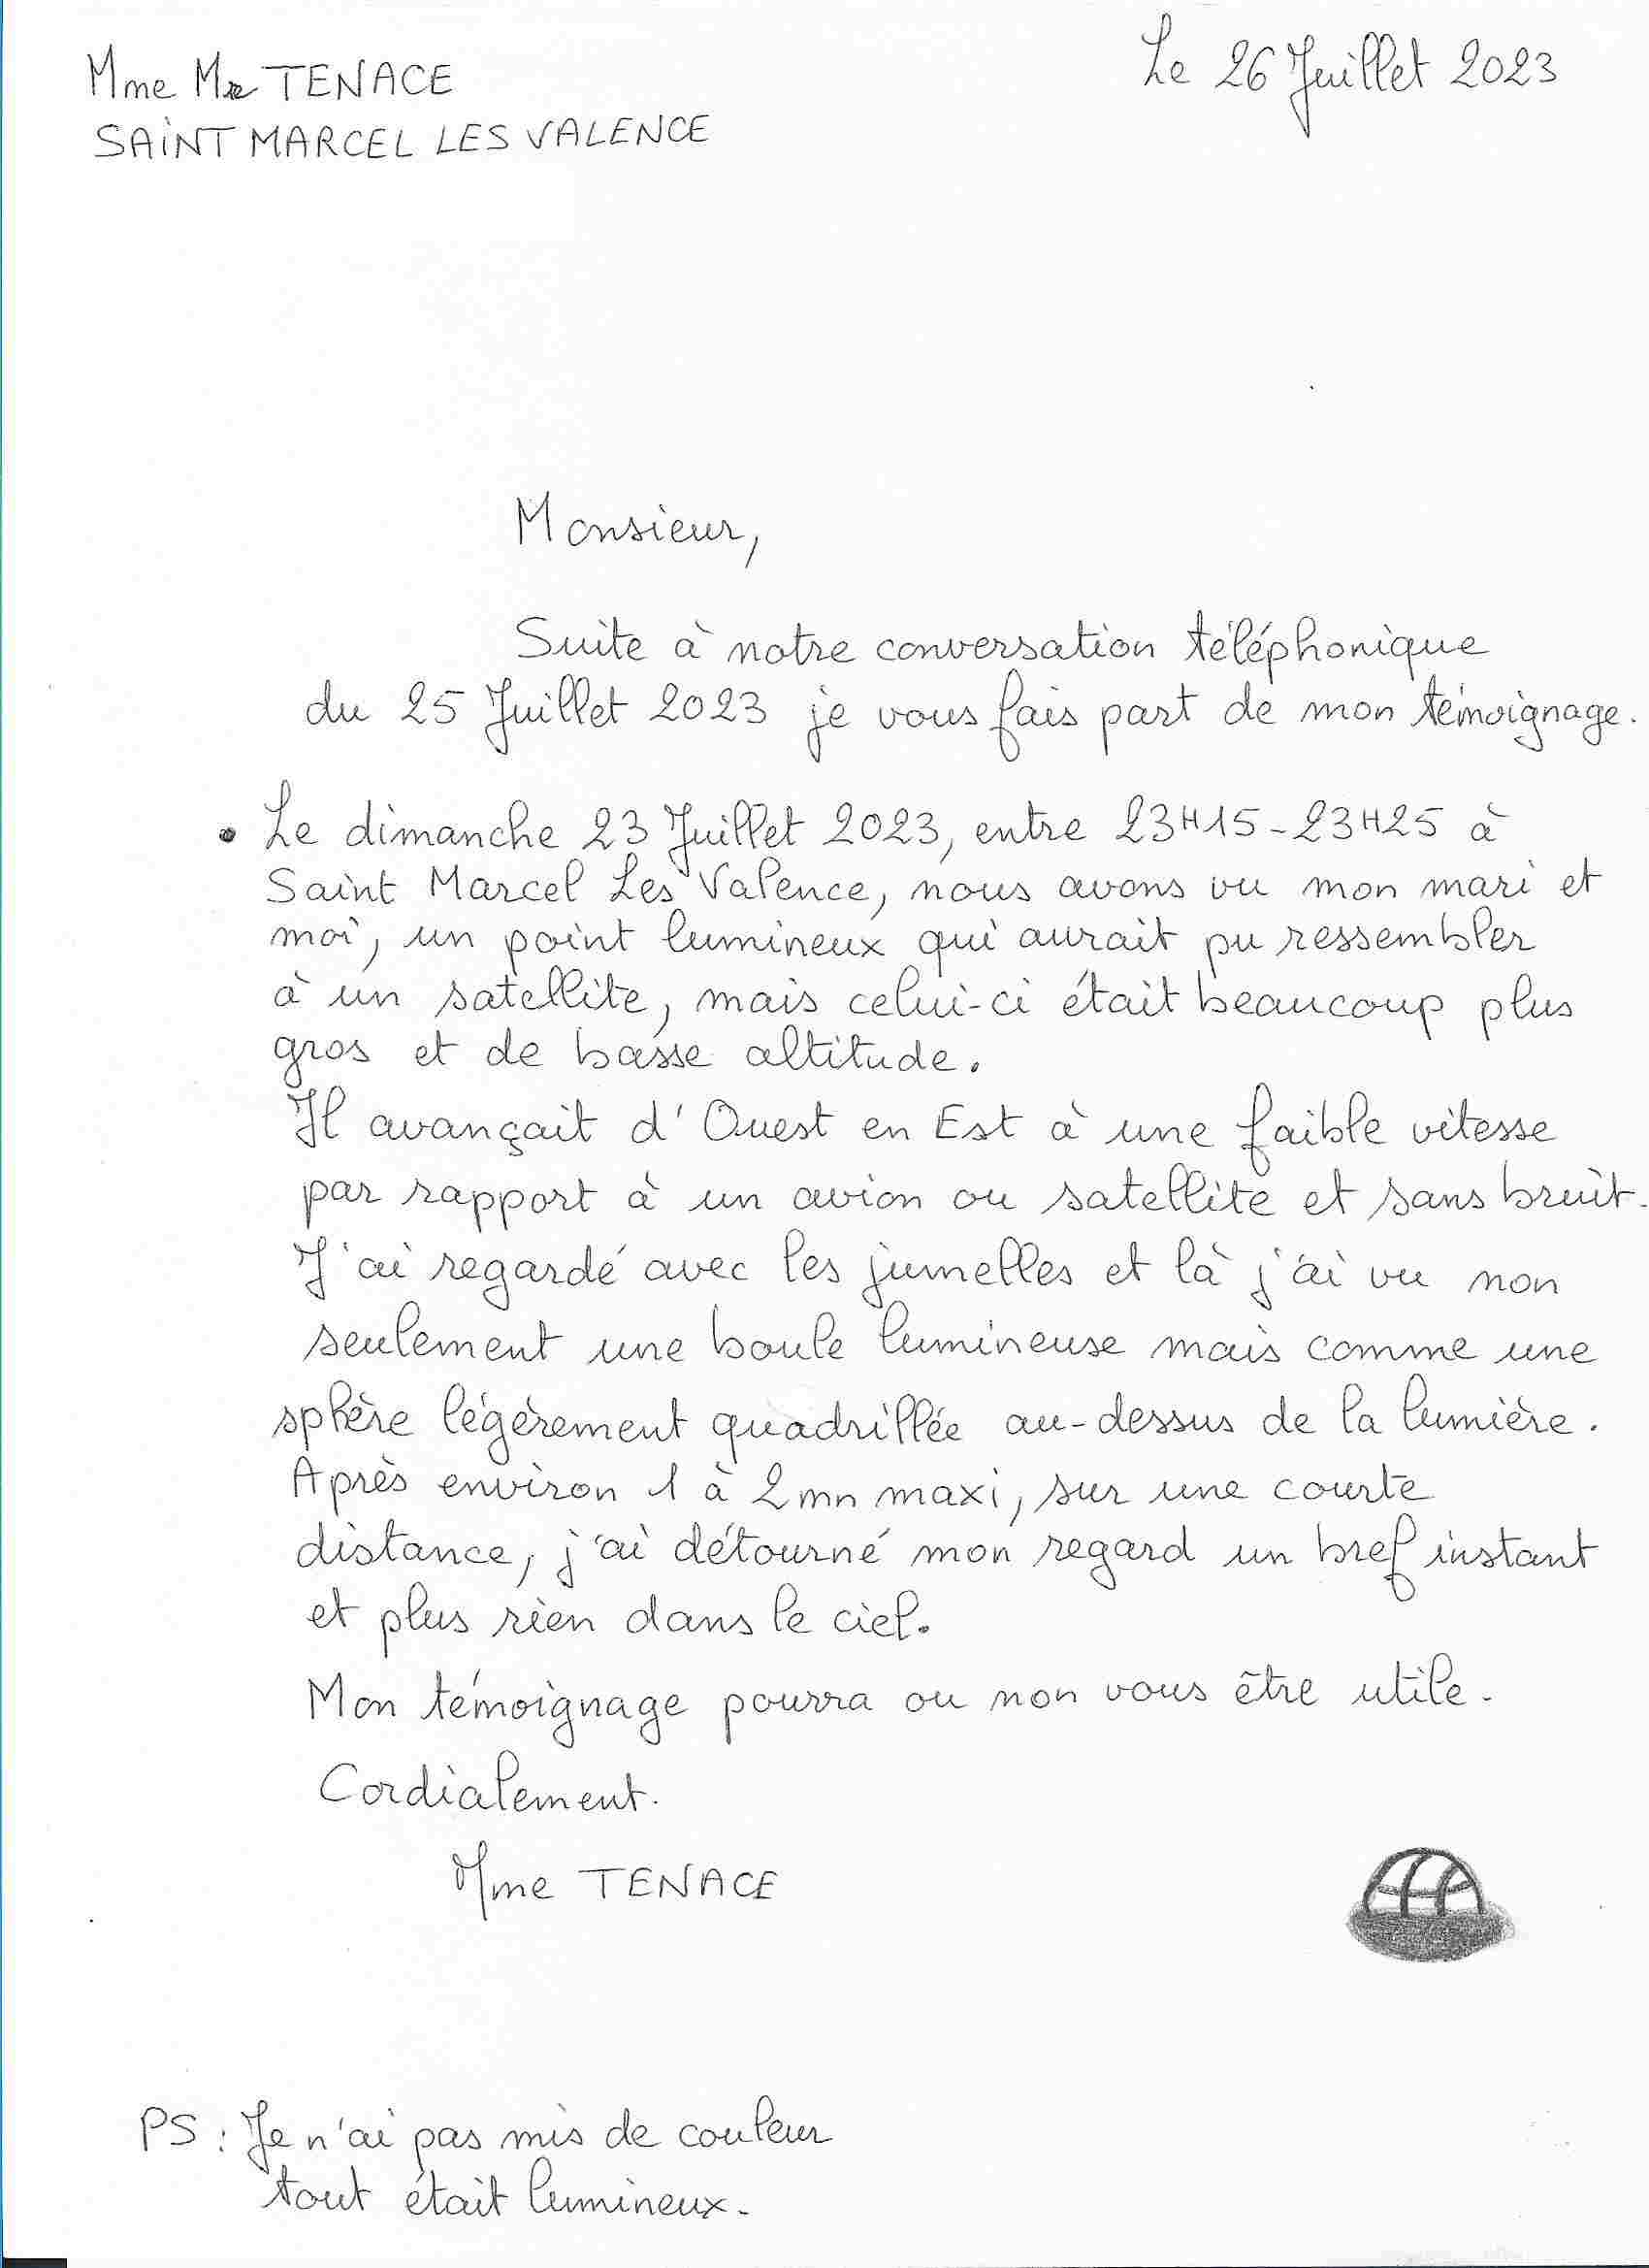 Mme Mr TENACE
SAINT MARCEL LES VALENCE
Le 26 Juillet 2023
Monsieur,
Suite à notre conversation téléphonique
du 25 Juillet 2023 je vous fais part de mon témoignage.
• Le dimanche 23 Juillet 2023, entre 23H15-23H25 à
Saint Marcel Les Valence, nous avons vu mon mari et
moi, un point lumineux qui aurait pu ressembler
à un satellite, mais celui-ci était beaucoup plus
gros et de basse altitude.
Il avançait d'Ouest en Est à une faible vitesse
par rapport à un avion ou satellite et sans bruit.
J'ai regardé avec les jumelles et là j'ai vu non
seulement une boule lumineuse mais comme une
sphère légèrement quadrillée au-dessus de la lumière.
Après environ 1 à 2mn maxi, sur une courte
distance, j'ai détourné mon regard un bref instant
et plus rien dans le ciel.
Mon témoignage pourra ou non vous être utile.
Cordialement.
Mme TENACE
PS : Je n'ai pas mis de couleur
tout était lumineux.